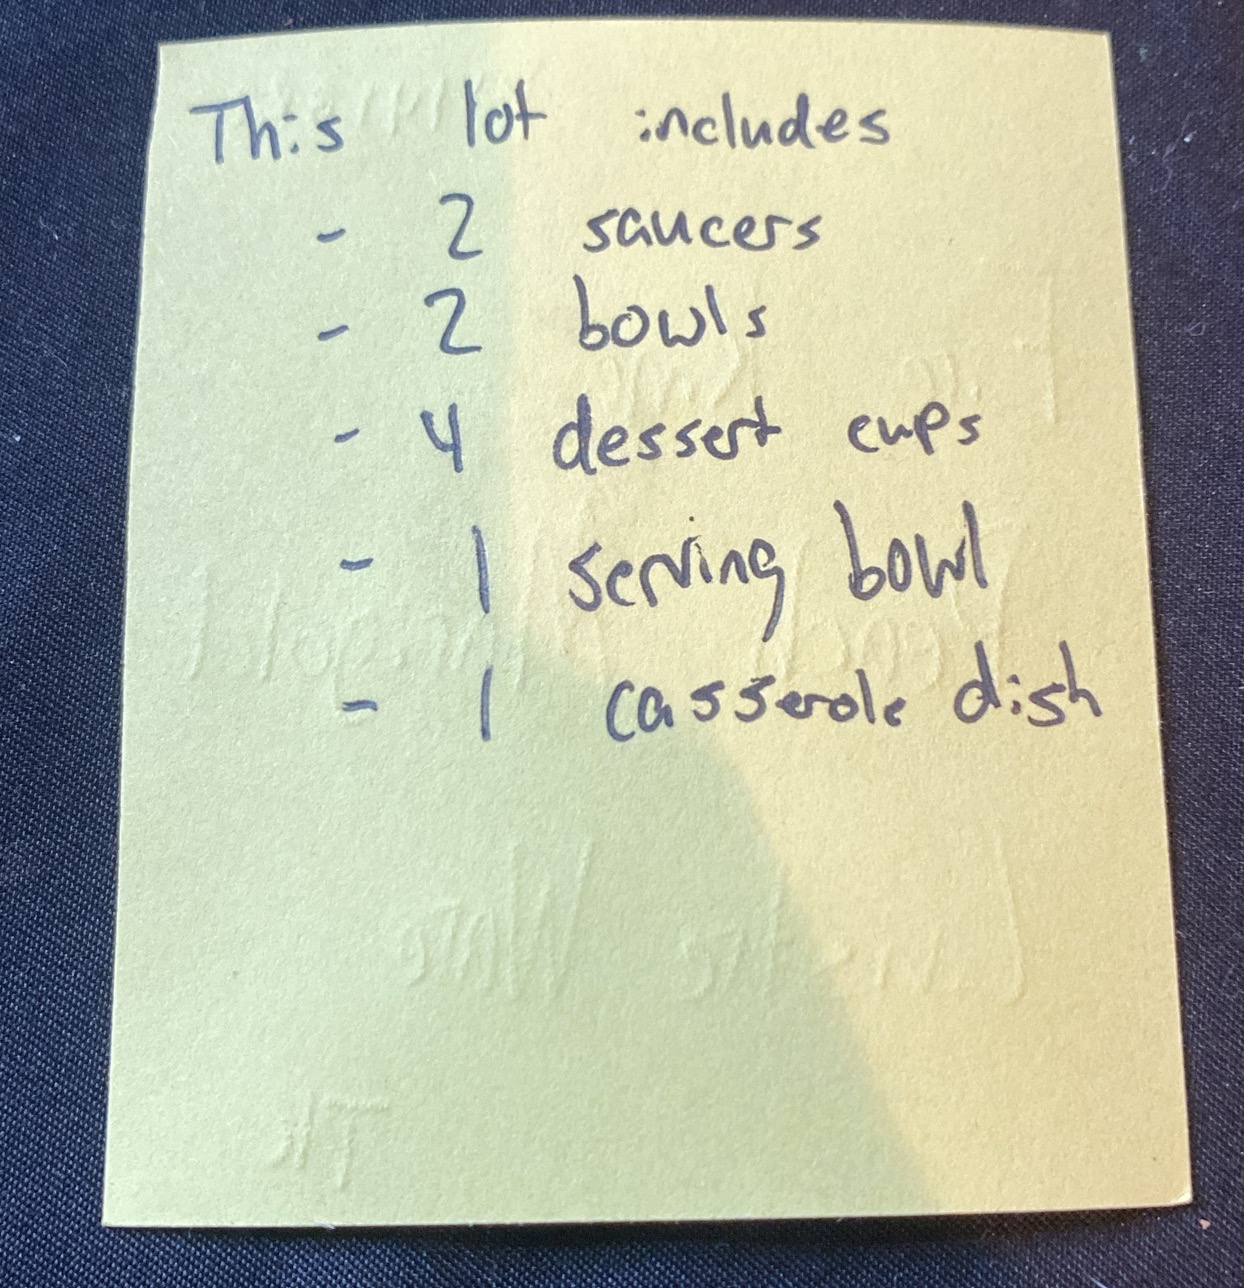 This lot includes
- 2 saucers
- 2 bowls
- 4 dessert cups
- 1 serving bowl
- 1 casserole dish